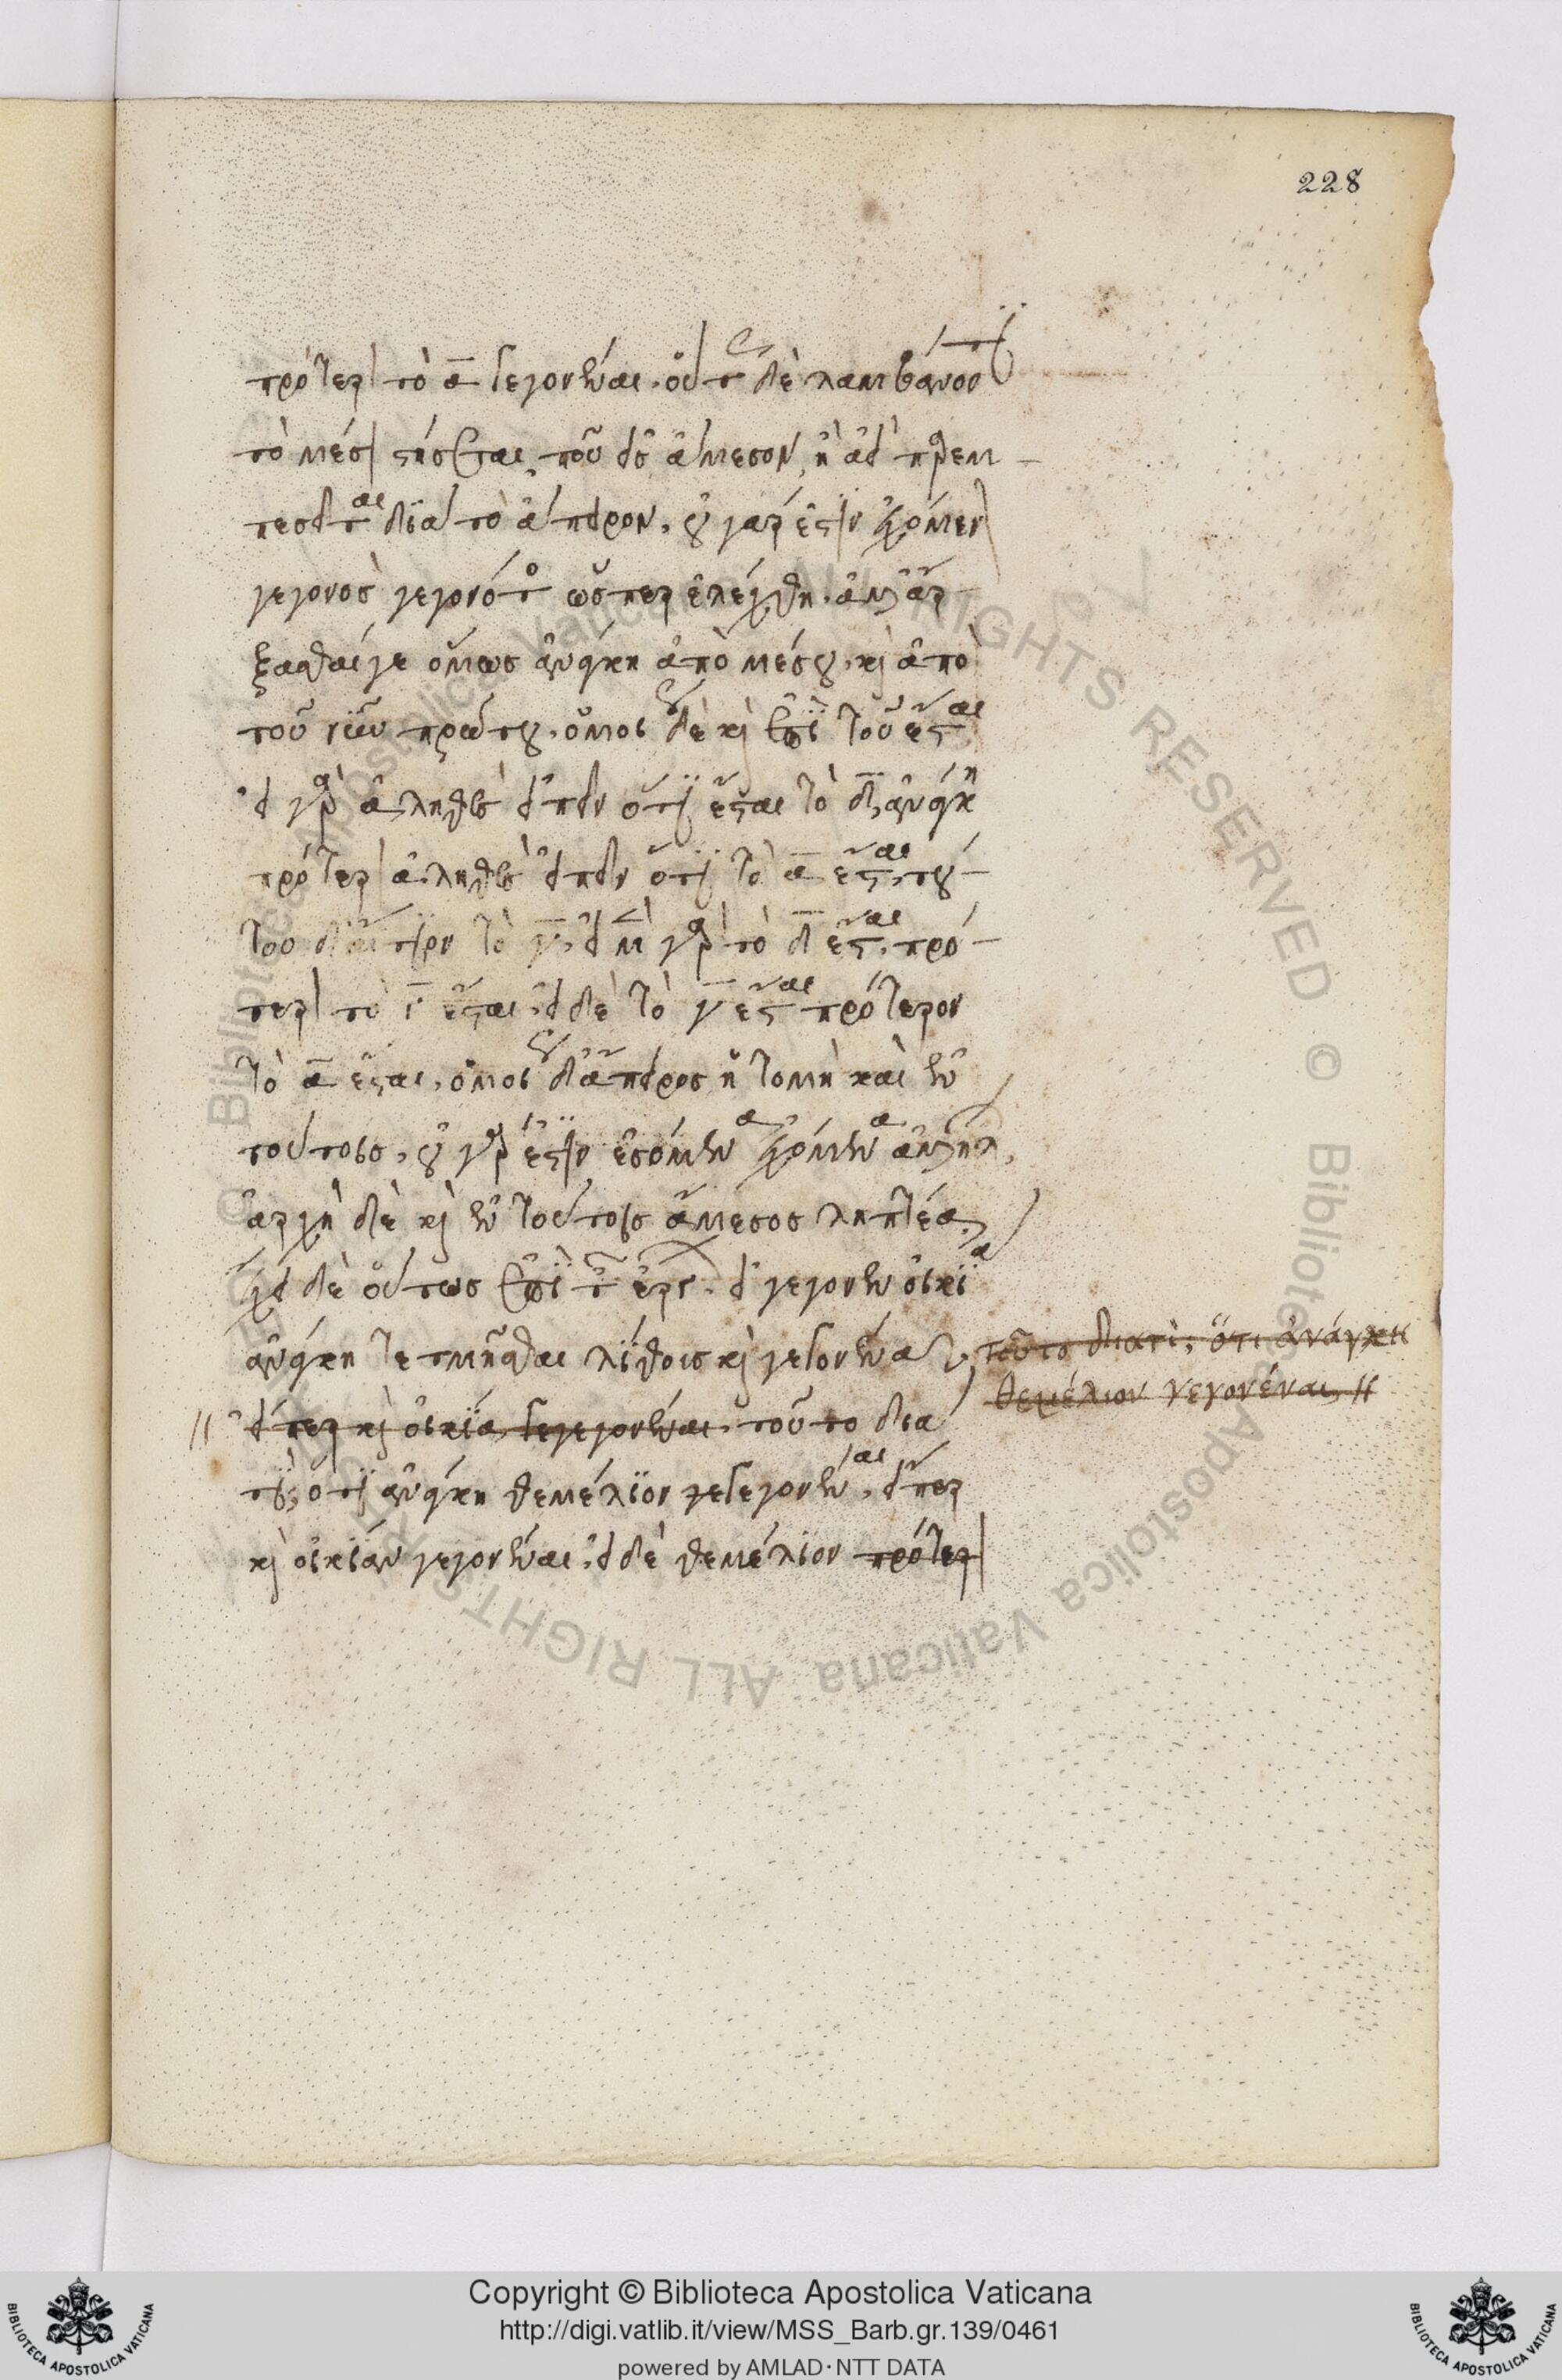 228
πρότερον τὸ α γεγονέναι. οὕτως δὲ λαμβάνοντι
τὸ μέσον στήσεταί που εἰς ἄμεσον, ἢ ἀεὶ παρεμ-
πεσεῖται διὰ τὸ ἄπειρον. οὐ γάρ ἐστιν ἐχόμενον
γεγονὸς γεγονότος ὥσπερ ἐλέχθη. ἀλλ' ἄρ-
ξασθαί γε ὅμως ἀνάγκη ἀπὸ μέσου, καὶ ἀπὸ
τοῦ νῦν πρώτου. ὁμοίως δὲ καὶ ἐπὶ τοῦ ἔσται,
εἰ γὰρ ἀληθὲς εἰπεῖν ὅτι ἔσται τὸ δ, ἀνάγκη
πρότερον ἀληθὲς εἰπεῖν ὅτι τὸ α ἔσται, τού-
του δ' αἴτιον τὸ γ, εἰ μὲν γὰρ τὸ δ ἔσται, πρό-
τερον τὸ γ ἔσται, εἰ δὲ τὸ γ ἔσται πρότερον
τὸ α ἔσται, ὁμοίως δ' ἄπειρος ἡ τομὴ καὶ ἐν
τούτοις, οὐ γάρ ἐστιν ἐσόμενα ἐχόμενα ἀλλήλων,
ἀρχὴ δὲ καὶ ἐν τούτοις ἄμεσος ληπτέα,
ἔχει δὲ οὕτως ἐπὶ τῶν ἔργων. εἰ γέγονεν οἰκία
ἀνάγκη τετμῆσθαι λίθους καὶ γεγονέναι, τοῦτο διατί; ὅτι ἀνάγκη
θεμέλιον γεγονέναι,
εἴπερ καὶ οἰκία γεγεγονέναι. τοῦτο διὰ
τί; ὅτι ἀνάγκη θεμέλιον γεγεγονέναι, εἴπερ
καὶ οἰκίαν γεγονέναι, εἰ δὲ θεμέλιον πρότερον
Copyright © Biblioteca Apostolica Vaticana
http://digi.vatlib.it/view/MSS_Barb.gr.139/0461
powered by AMLAD·NTT DATA
BIBLIOTECA APOSTOLICA VATICANA
BIBLIOTECA APOSTOLICA VATICANA
© Biblioteca Apostolica Vaticana ALL RIGHTS RESERVED © Biblioteca Apostolica Vaticana ALL RIGHTS